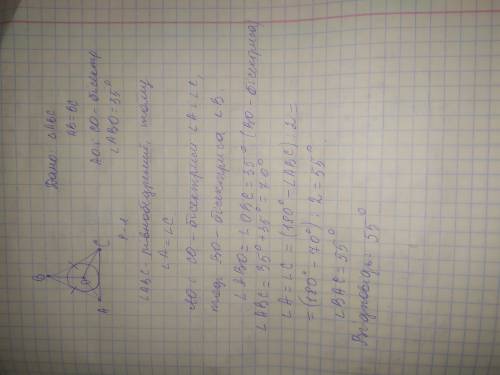 Дано: △ABC
AB=BC
AO і CO - бісектр
∠ABO=35°
B
O
A
C
∠ABC - рівнобедрений, тому
∠A=∠C
AO і CO - бісектриси ∠A і ∠C,
тоді BO - бісектриса ∠B
∠ABO=∠OBC=35° (BO - бісектриса)
∠ABC=35°+35°=70°
∠A=∠C=(180°-∠ABC):2=
=(180°-70°):2=55°
∠BAC=55°
Відповідь: 55°